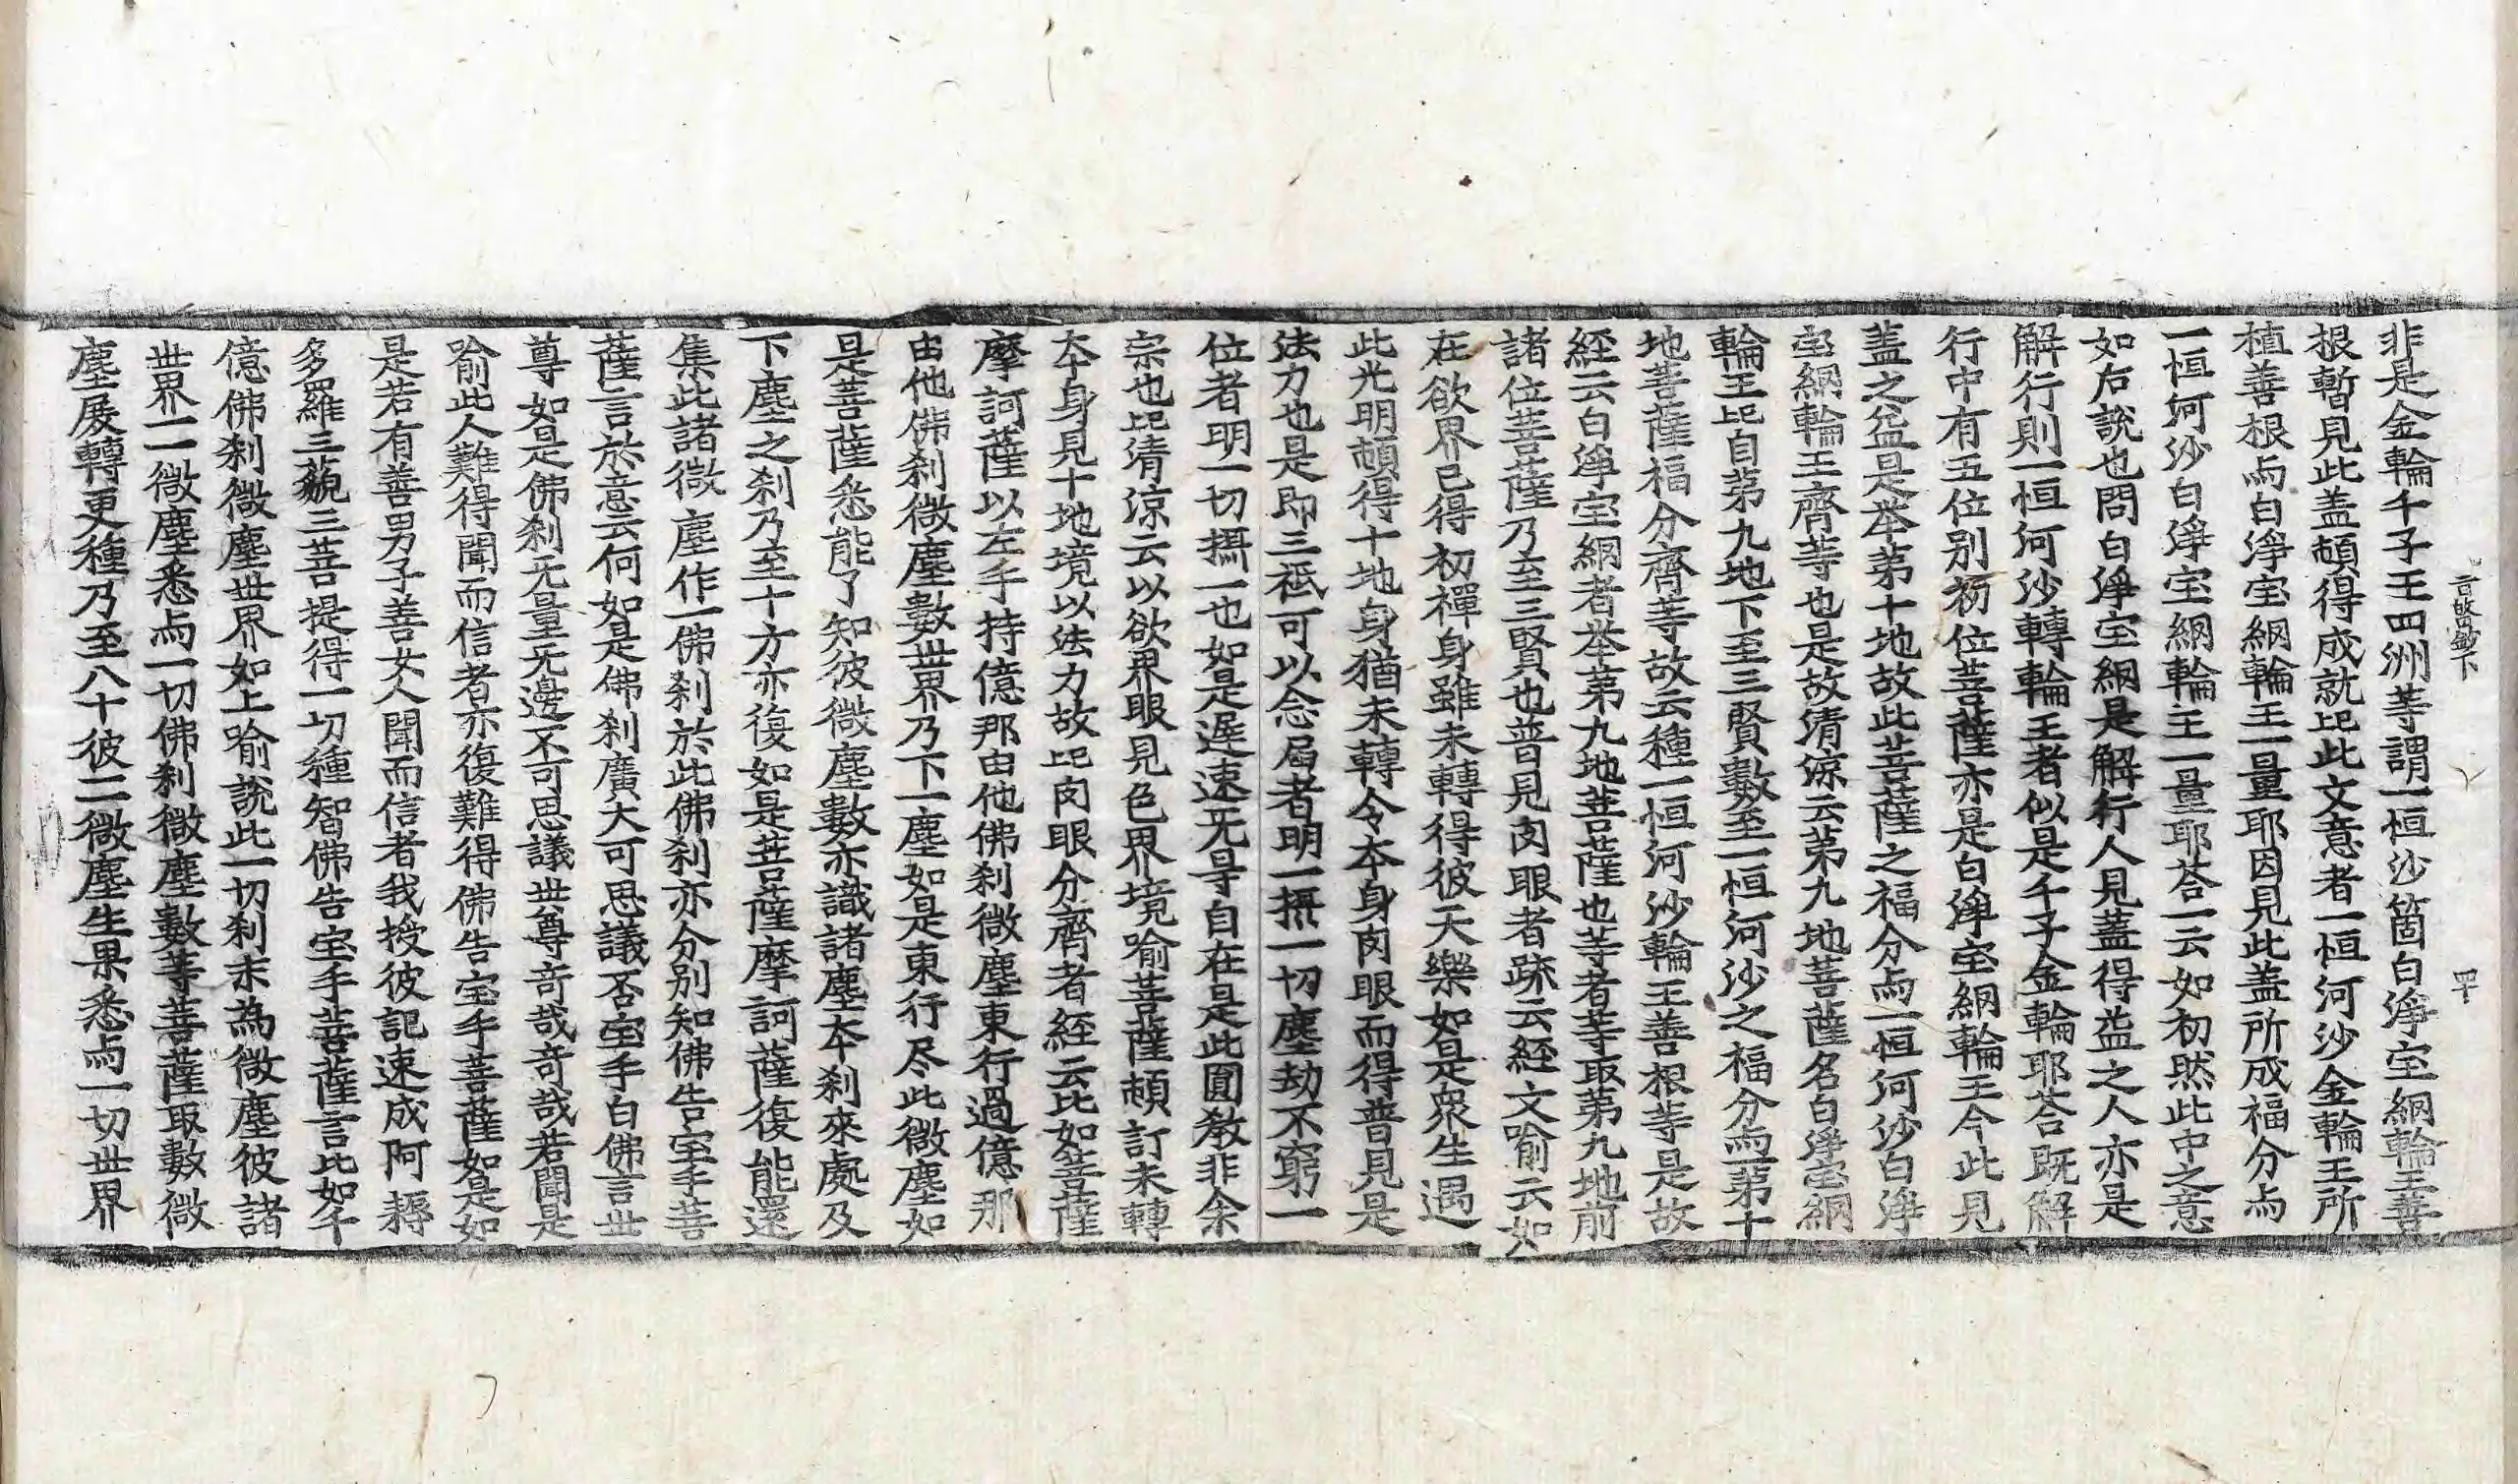 旨𢿜鈔下　四十
非是金輪千子王四洲等謂一恒沙箇白淨宝網輪王善
根暫見此盖頓得成就㠯此文意者一恒河沙金輪王所
植善根为白淨宝網輪王一量耶因見此盖所成福分为
一恒河沙白淨宝網輪王一量耶荅一云如初然此中之意
如右說也問白淨宝網是解行人見蓋得益之人亦是
解行則一恒河沙轉輪王者似是千子金輪耶荅既解
行中有五位別初位菩薩亦是白淨宝網輪王今此見
盖之益是举第十地故此菩薩之福分为一恒河沙白淨
宝網輪王齊等也是故清凉云第九地菩薩名白淨宝網
輪王㠯自第九地下至三賢數至一恒河沙之福分为一第十
地菩薩福分齊等故云種一恒河沙輪王善根等是故
経云白淨宝網者举第九地菩薩也等者等取第九地前
諸位菩薩乃至三賢也普見肉眼者䟽云経文喻云如
在欲界已得初禪身雖未轉得彼天樂如是衆生遇
此光明頓得十地身猶未轉令本身肉眼而得普見是
法力也是即三祇可以念局者明一攝一切塵劫不窮一
位者明一切攝一也如是遅速无导自在是此圓教非余
宗也㠯清凉云以欲界眼見色界境喻菩薩頓訂未轉
本身見十地境以法力故㠯肉眼分齊者経云比如菩薩
摩訶薩以左手持億那由他佛刹微塵東行過億那
由他佛刹微塵數世界乃下一塵如是東行尽此微塵如
是菩薩悉能了知彼微塵數亦識諸塵本刹來處及
下塵之刹乃至十方亦復如是菩薩摩訶薩復能還
集此諸微塵作一佛刹於此佛刹亦分別知佛告宝手菩
薩言於意云何如是佛刹廣大可思議否宝手白佛言世
尊如是佛刹无量无邊不可思議世尊奇哉奇哉若聞是
喻此人難得聞而信者亦復難得佛告宝手菩薩如是如
是若有善男子善女人聞而信者我授彼記速成阿耨
多羅三藐三菩提得一切種智佛告宝手菩薩言比如千
億佛刹微塵世界如上喻說此一切刹末為微塵彼諸
世界一一微塵悉为一切佛刹微塵數等菩薩取數微
塵展轉更種乃至八十彼二微塵生果悉为一切世界